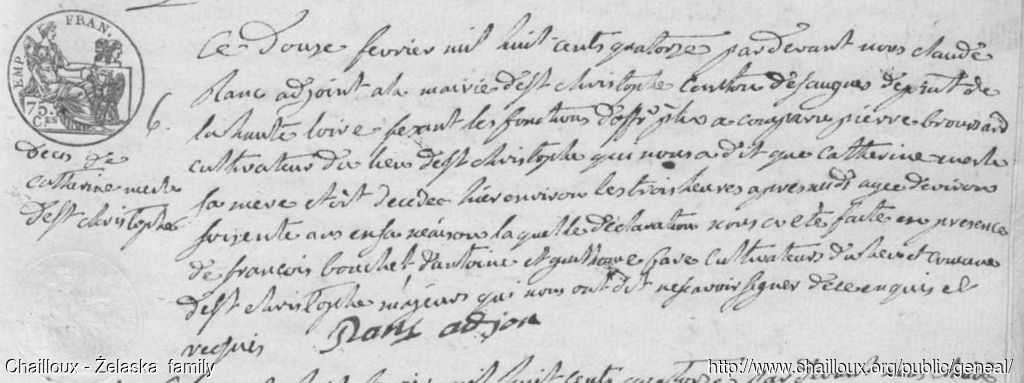 EMP. FRAN.
75.
CES
6.
Deces de
Catherine merle
dest christophe
Ce Douze fevrier mil huit cents quatorze pardevant nous claude
Ranc adjoint ala mairie dest christophe Canthon desaugues depmt de
la haute loire fexant les fonctions doffr plix a comparu pierre broussard
cultivateur du lieu dest christophe qui nous a dit que Catherine merle
sa mere etoit decedee hier environ les trois heures apres midi agee denviron
soixente ans en sa maison laquelle declaration nous a eté faite en presence
de francois bouchet dantoine et guillaume pare cultivateurs du lieu et comune
dest christophe majeurs qui nous ont dit ne scavoir signer de ce enquis et
requis Ranc adjoin
mil huit cents quatorze par devant nous claude
Chailloux - Żelaska family
http://www.chailloux.org/public/geneal/